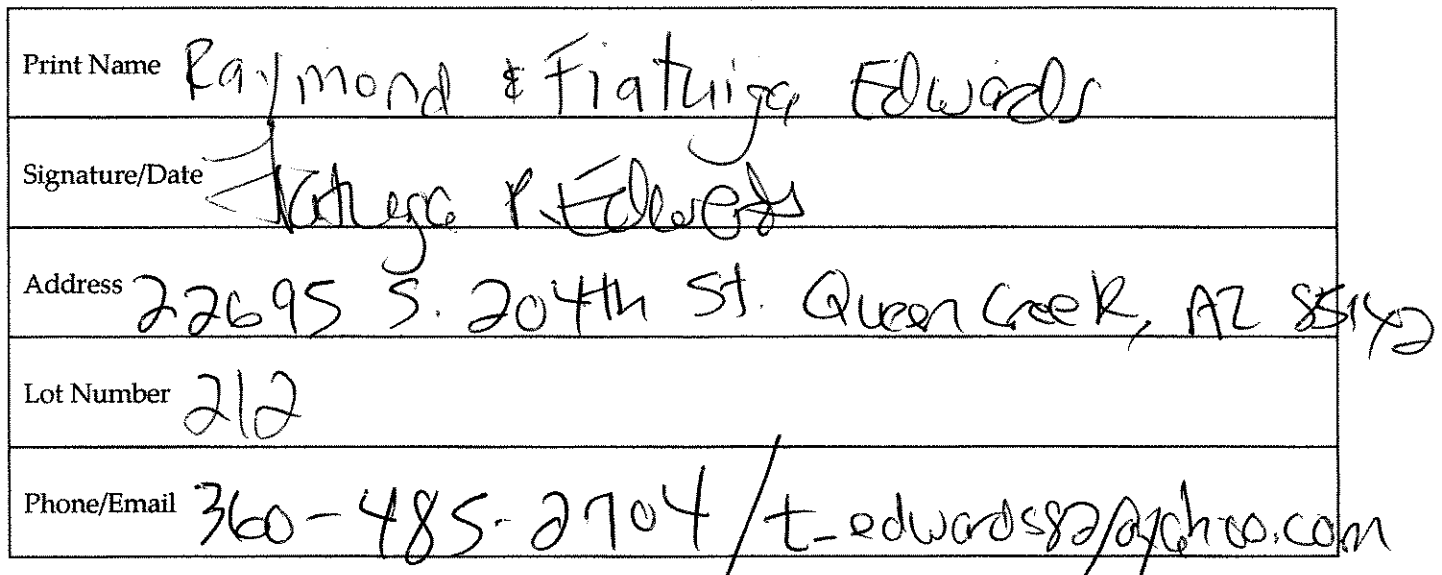 Print Name Raymond & Fiatuiga Edwards
Signature/Date Fiatuiga P. Edwards
Address 22695 S. 204th St. Queen Creek, AZ 85142
Lot Number 212
Phone/Email 360-485-2704 / t_edwards82@yahoo.com